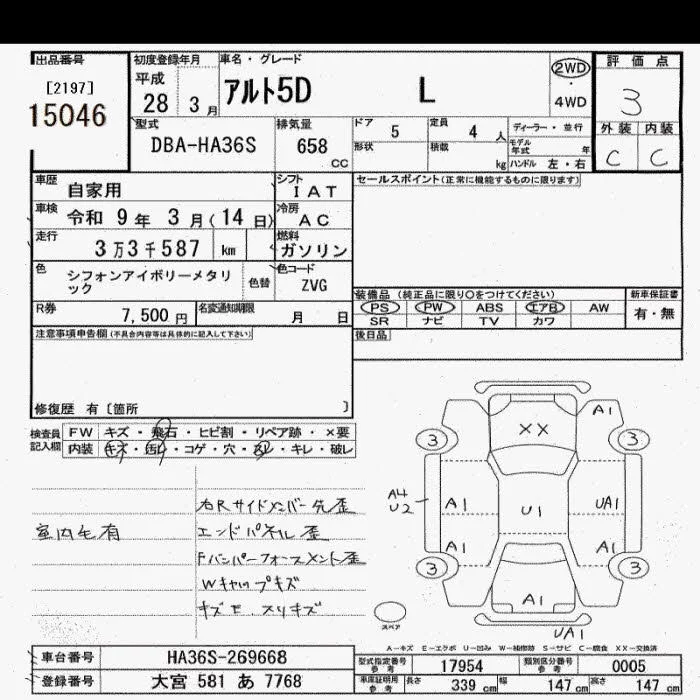 出品番号
[2197]
15046
初度登録年月
平成
28 3月
車名・グレード
アルト5D L
2WD
・
4WD
評価点
3
外装 内装
C C
型式
DBA-HA36S
排気量
658
CC
ドア 5
定員 4 人
形状
積載 kg
ディーラー・並行
モデル年式 年
ハンドル 左・右
車歴
自家用
シフト
IAT
セールスポイント(正常に機能するものに限ります)
車検
令和 9年 3月(14日)
冷房
AC
走行
3万3千587 km
燃料
ガソリン
色
シフォンアイボリーメタリ
ック
色替
色コード
ZVG
装備品 (純正品に限り○をつけてください)
新車保証書
PS PW ABS エアB AW
有・無
SR ナビ TV カワ
R券
7,500円
名変通知期限
月 日
後日品
注意事項申告欄(不具合内容等は具体的に記入して下さい)
修復歴 有〔箇所 〕
検査員
記入欄
FW キズ・飛石・ヒビ割・リペア跡・×要
内装 キズ・汚レ・コゲ・穴・・キレ・破レ
右Rサイドメンバー先歪
室内毛有
エンドパネル歪
Fバンパーフォースメント歪
Wキャップキズ
キズE スリキズ
XX
A1
3
3
A4
U2
A1
U1
UA1
A1
A1
3
3
A1
UA1
スペア
A-キズ E-エクボ U-凹み W-補修跡 S-サビ C-腐食 XX-交換済
車台番号
HA36S-269668
型式指定番号
参考
17954
類別区分番号
参考
0005
登録番号
大宮 581 あ 7768
車庫証明用
参考
長さ 339 cm
幅 147 cm
高さ 147 cm